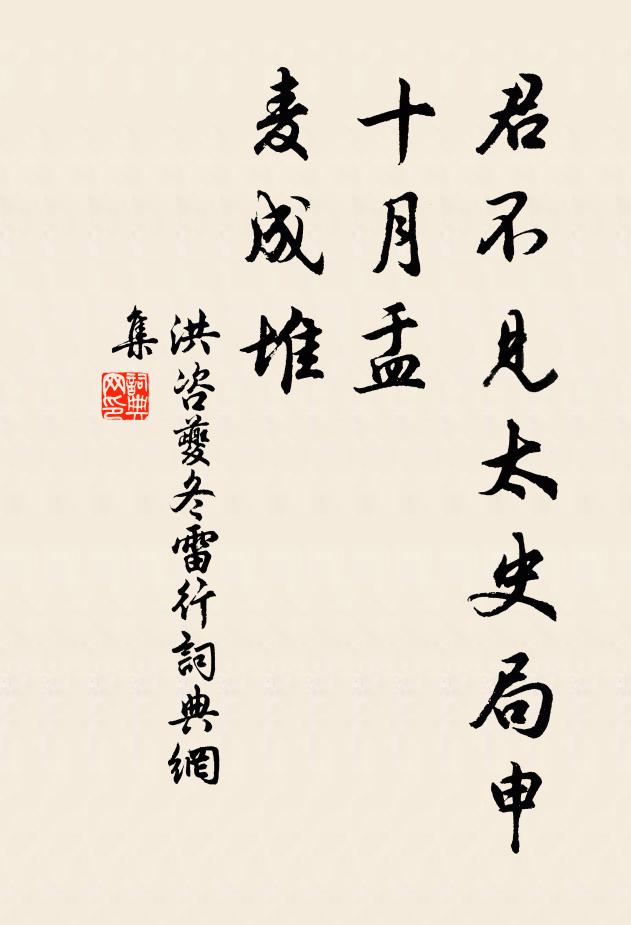 君不見太史局申
十月盂
麦成堆
洪咨夔冬雷行詞典網
集
詞典
网印